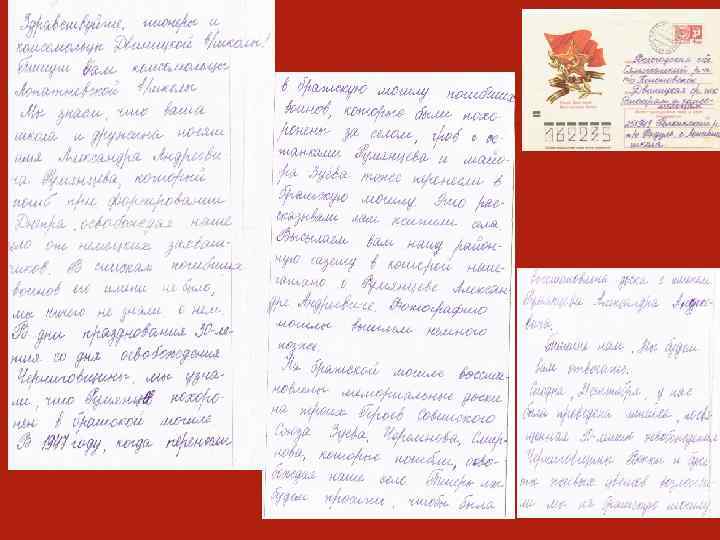 Здравствуйте, пионеры и
комсомольцы Двиницкой школы!
Пишут Вам комсомольцы
Лопатинской школы
Мы знаем, что ваша
школа и дружина носят
имя Александра Андрееви
ча Румянцева, который
погиб при форсировании
Днепра, освобождая наше
село от немецких захват-
чиков. В списках погибших
воинов его имени не было,
мы ничего не знали о нем.
В дни празднования 30-ле-
тия со дня освобождения
Черниговщины, мы узна-
ли, что Румянцев похоро-
нен в братской могиле
В 1947 году, когда переносили
в братскую могилу погибших
воинов, которые были похо-
ронены за селом, гроб с ос-
танками Румянцева и майо-
ра Зуева тоже перенесли в
братскую могилу. Это рас-
сказывали нам жители села.
Высылаем вам нашу район-
ную газету в которой напе-
чатано о Румянцеве Алексан-
дре Андреевиче. Фотографию
могилы вышлем немного
позже.
На братской могиле восста-
новлены мемориальные доски
на троих Героев Советского
Союза Зуева, Смир-
нова, которые погибли, осво-
бождая наше село. Теперь мы
будем просить, чтобы была
доска с именем
Румянцева Александра Андрее-
вича.
Пишите нам. Мы будем
вам отвечать.
Сегодня, у нас
был проведен митинг, посвя-
щенная освобождения
Черниговщины. Венки и буке
ты живых цветов возложи-
ли мы на братскую могилу.
Вологодская обл.
Сямженский р-н
п/о
Двиницкая ср. шк
Пионерам и комсо-
мольцам
162235
школа